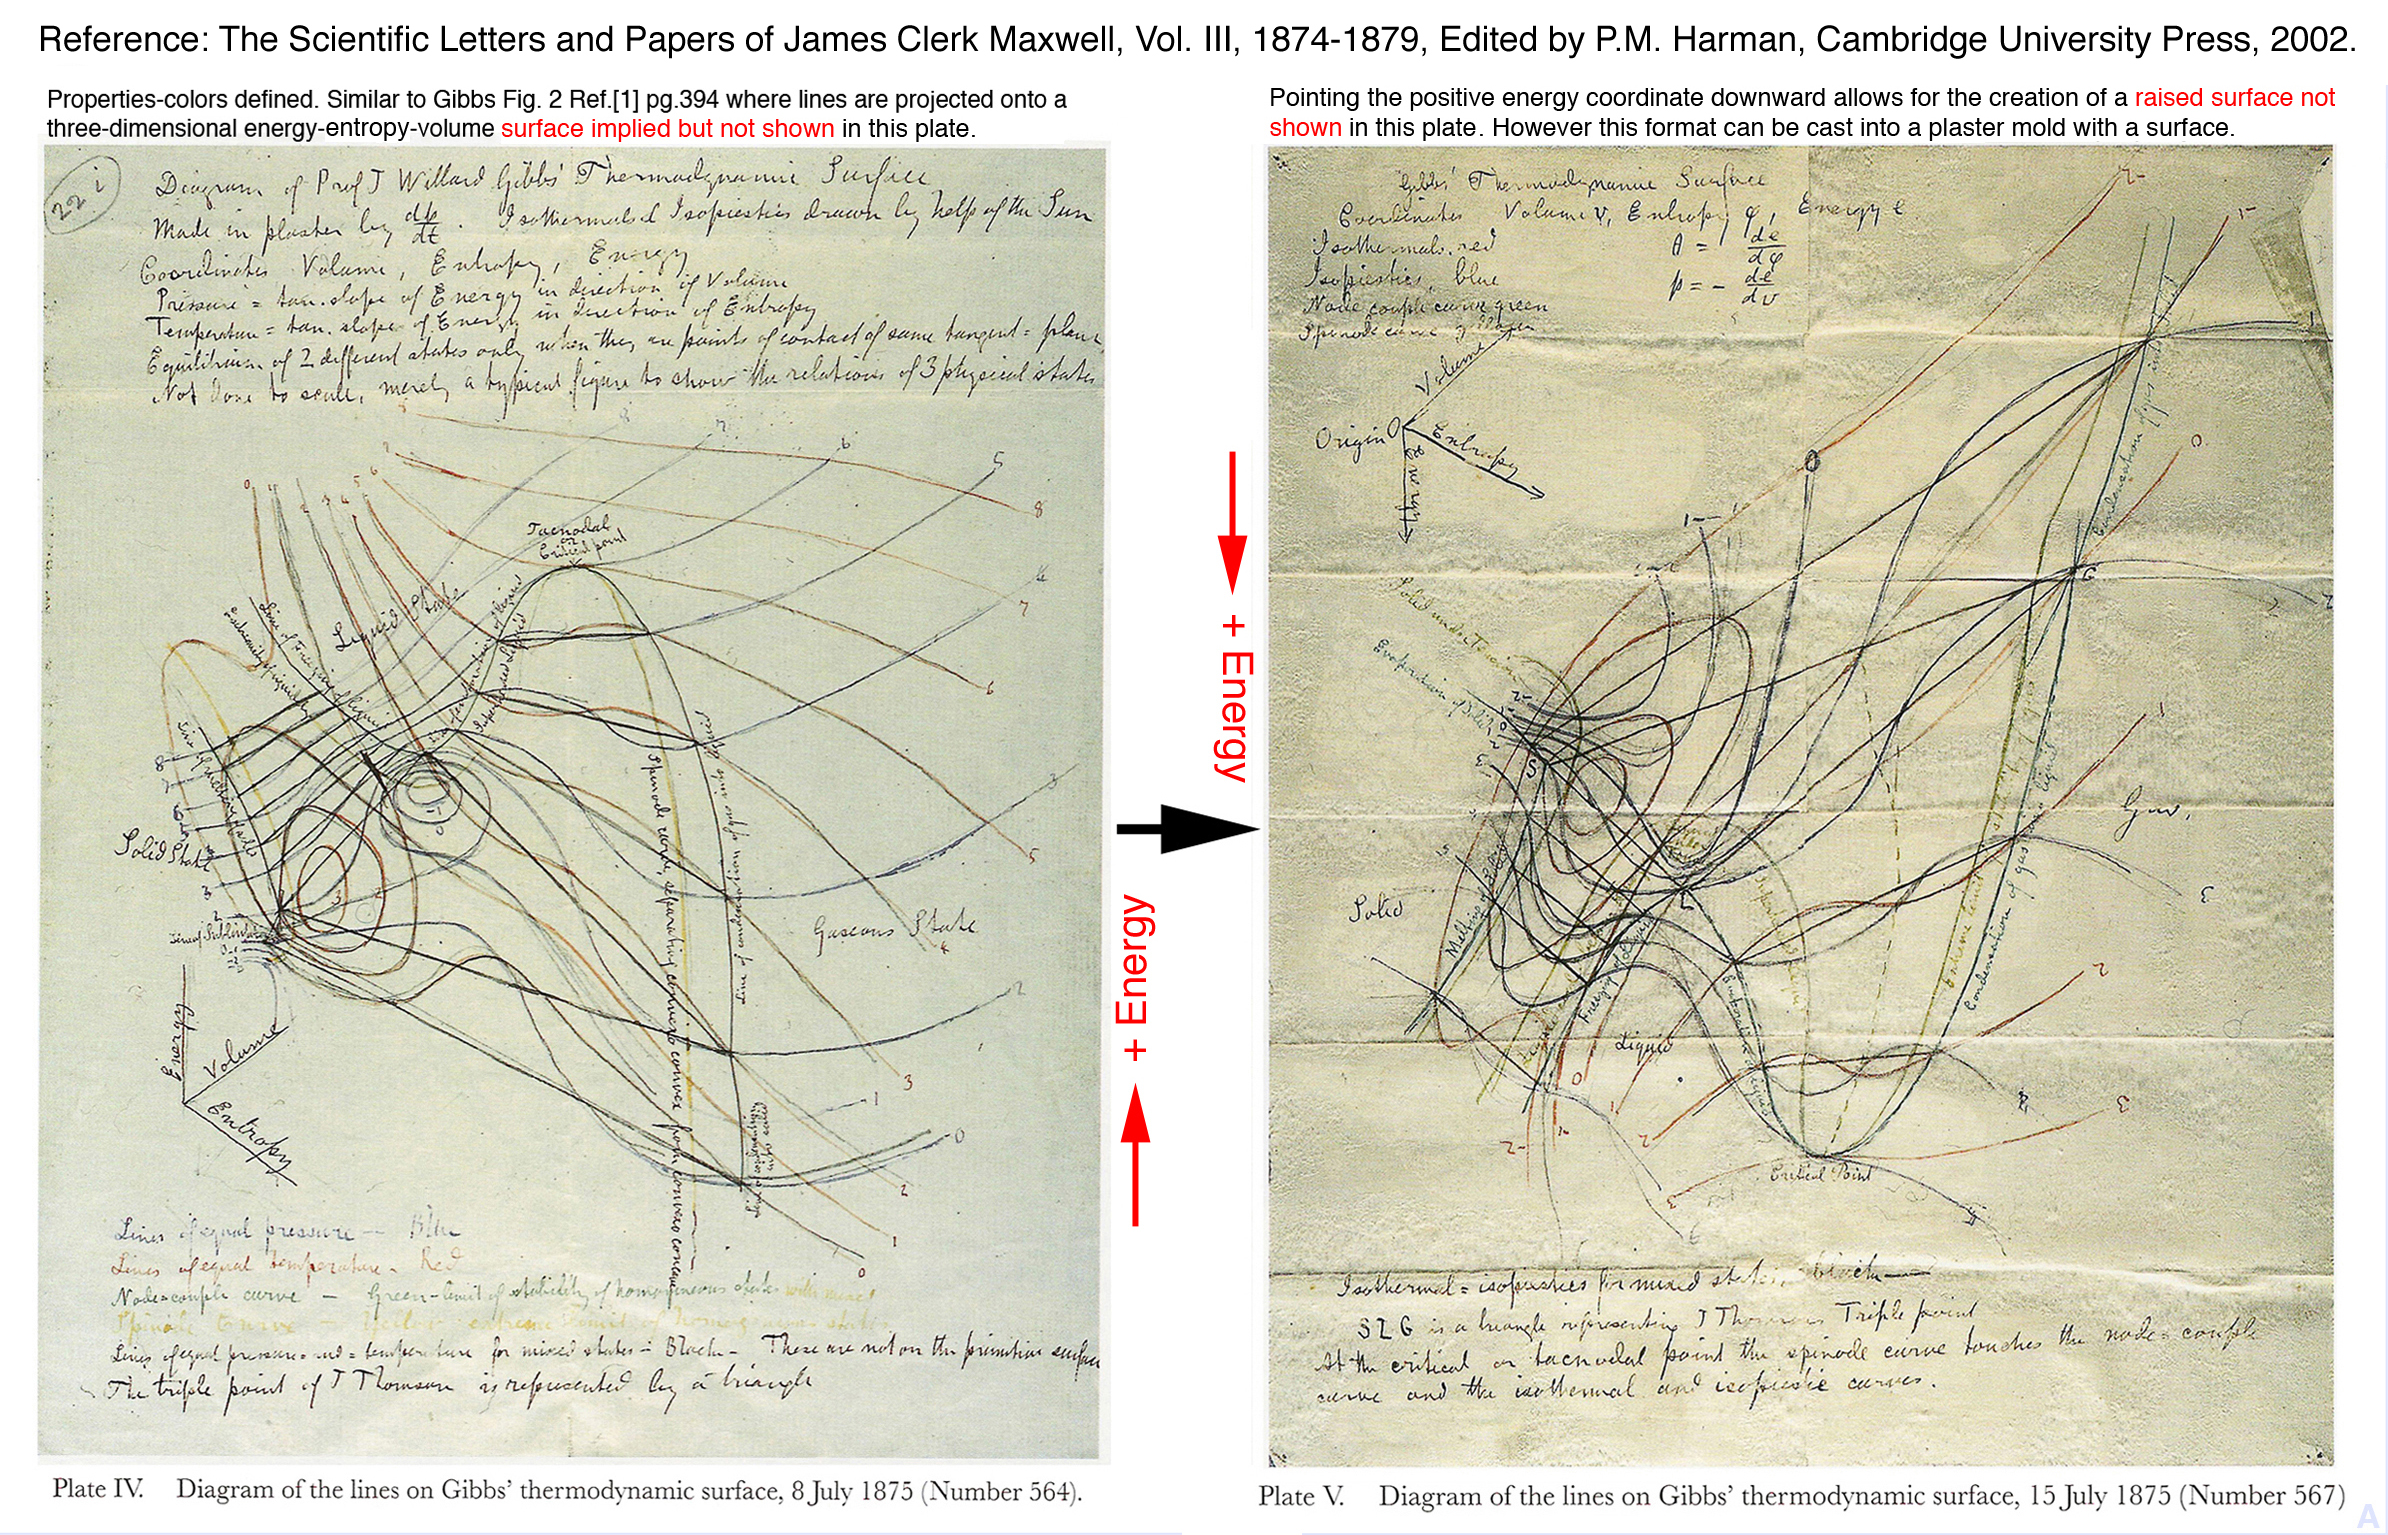 Reference: The Scientific Letters and Papers of James Clerk Maxwell, Vol. III, 1874-1879, Edited by P.M. Harman, Cambridge University Press, 2002.
Properties-colors defined. Similar to Gibbs Fig. 2 Ref.[1] pg.394 where lines are projected onto a
three-dimensional energy-entropy-volume surface implied but not shown in this plate.
22 i
Diagram of Prof J Willard Gibbs' Thermodynamic Surface
Made in plaster by dφ/dt. Isothermals & Isopiestics drawn by help of the Sun
Coordinates Volume, Entropy, Energy
Pressure = tan. slope of Energy in direction of Volume
Temperature = tan. slope of Energy in direction of Entropy
Equilibrium of 2 different states only when they are points of contact of same tangent = plane
Not done to scale, merely a typical figure to show the relations of 3 physical states
8
7
6
5
8
4
7
6
5
3
4
2
3
1
0
2
1
0
Tacnodal
or
Critical point
Liquid State
Line of Freezing of liquid
Solid State
Gaseous State
Line of condensation of gas into liquid
Spinode curve, separating convexo convex from convexo concave
Energy
Volume
Entropy
Lines of equal pressure — Blue
Lines of equal temperature - Red
Node-couple curve — Green - limit of stability of homogeneous states with mixed
Spinode Curve — Yellow extreme limit of homogeneous states
Lines of equal pressure = and = temperature for mixed states = Black - These are not on the primitive surface
The triple point of J Thomson is represented by a triangle
Plate IV. Diagram of the lines on Gibbs' thermodynamic surface, 8 July 1875 (Number 564).
+ Energy
+ Energy
Pointing the positive energy coordinate downward allows for the creation of a raised surface not
shown in this plate. However this format can be cast into a plaster mold with a surface.
Gibbs' Thermodynamic Surface
Coordinates Volume v, Entropy φ, Energy e
Isothermals, red θ = de/dφ
Isopiestics, blue p = - de/dv
Node couple curve green
Spinode curve yellow
Volume
Origin O
Entropy
Energy
Solid under Tension
Evaporation of Solid
Condensation of gas into
0
S
G
L
Gas,
Solid
Melting of
Freezing of Liquid
Condensation of gas into liquid
Liquid
Critical Point
Isothermal = isopiestics for mixed states, black —
SLG is a triangle representing J Thomson's Triple point
At the critical or tacnodal point the spinode curve touches the node = couple
curve and the isothermal and isopiestic curves.
Plate V. Diagram of the lines on Gibbs' thermodynamic surface, 15 July 1875 (Number 567)
A